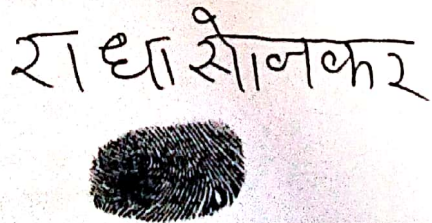 राधा सोनकर